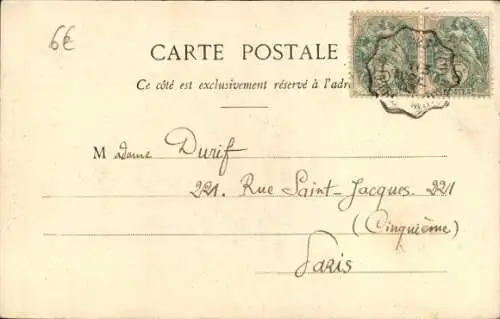 6€
CARTE POSTALE
Ce côté est exclusivement réservé à l'adre
Madame Durif
221. Rue Saint-Jacques. 221
(Cinquième)
Paris